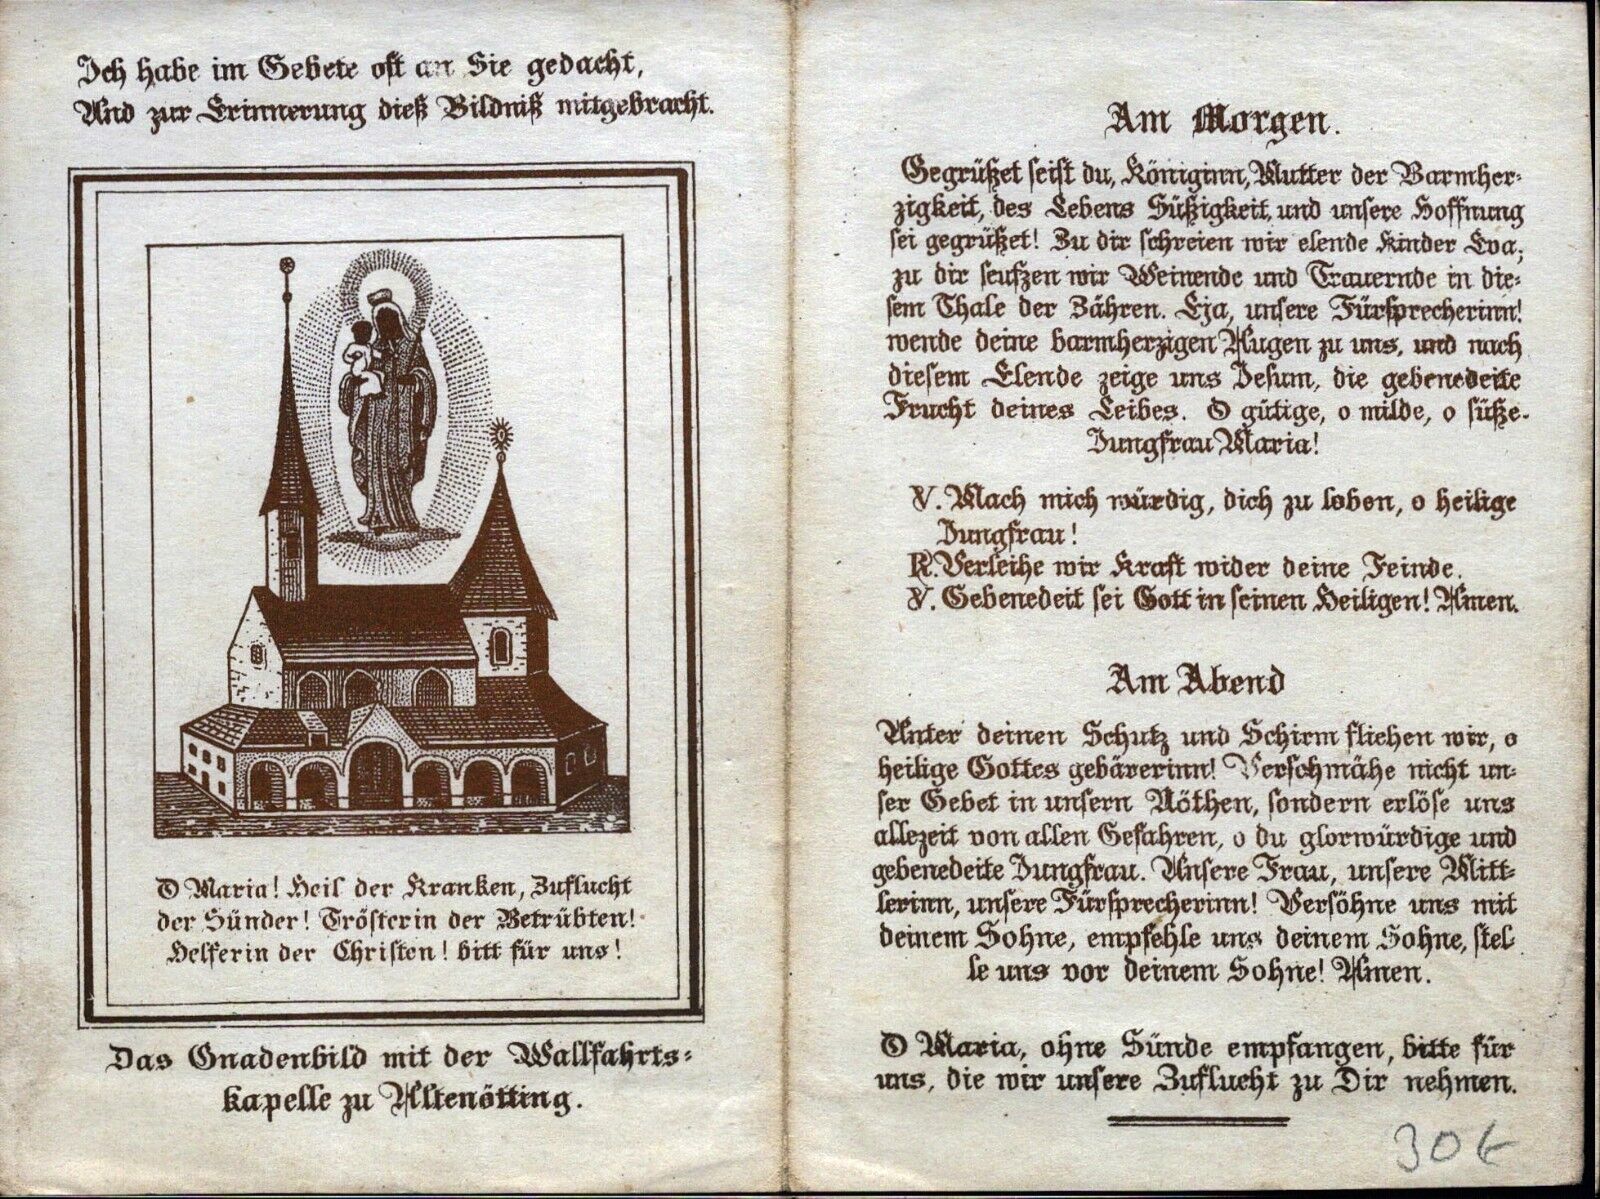 Ich habe im Gebete oft an Sie gedacht,
Und zur Erinnerung dieß Bildniß mitgebracht.
O Maria! Heil der Kranken, Zuflucht
der Sünder! Trösterin der Betrübten!
Helferin der Christen! bitt für uns!
Das Gnadenbild mit der Wallfahrts-
kapelle zu Altenötting.
Am Morgen.
Gegrüßet seist du, Königinn, Mutter der Barmher-
zigkeit, des Lebens Süßigkeit, und unsere Hoffnung
sei gegrüßet! Zu dir schreien wir elende Kinder Eva;
zu dir seufzen wir Weinende und Trauernde in die-
sem Thale der Zähren. Eja, unsere Fürsprecherinn!
wende deine barmherzigen Augen zu uns, und nach
diesem Elende zeige uns Jesum, die gebenedeite
Frucht deines Leibes. O gütige, o milde, o süße
Jungfrau Maria!
V. Mach mich würdig, dich zu loben, o heilige
Jungfrau!
R. Verleihe mir Kraft wider deine Feinde.
V. Gebenedeit sei Gott in seinen Heiligen! Amen.
Am Abend
Unter deinen Schutz und Schirm fliehen wir, o
heilige Gottes gebärerinn! Verschmähe nicht un-
ser Gebet in unsern Nöthen, sondern erlöse uns
allezeit von allen Gefahren, o du glorwürdige und
gebenedeite Jungfrau. Unsere Frau, unsere Mitt-
lerinn, unsere Fürsprecherinn! Versöhne uns mit
deinem Sohne, empfehle uns deinem Sohne, stel-
le uns vor deinem Sohne! Amen.
O Maria, ohne Sünde empfangen, bitte für
uns, die wir unsere Zuflucht zu Dir nehmen.
30 €